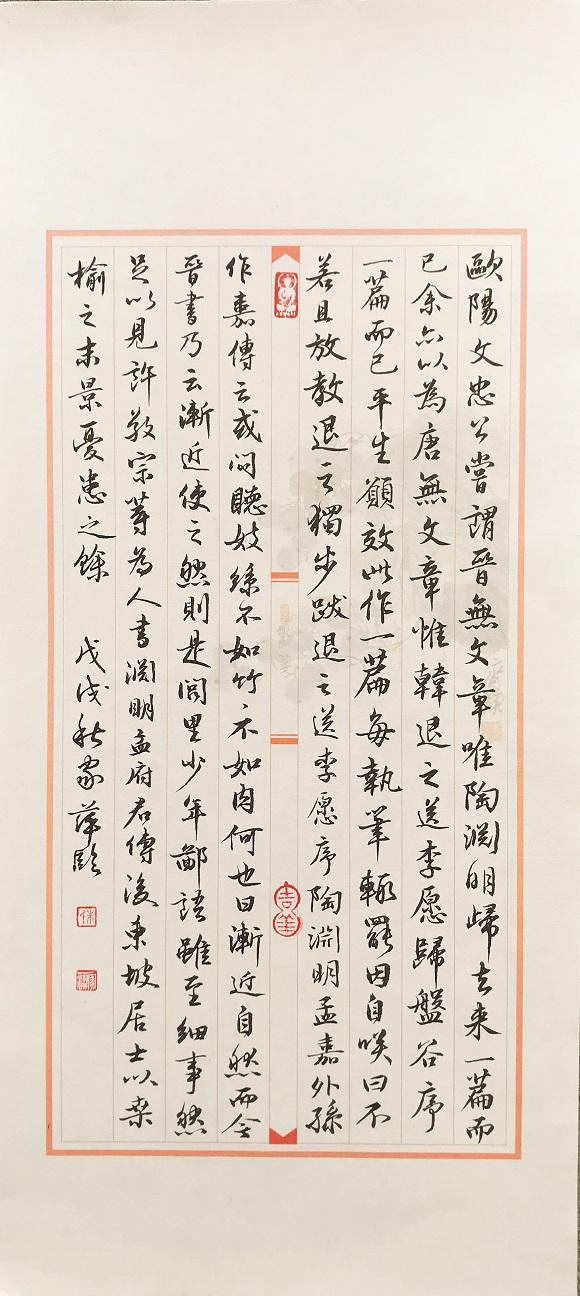 歐陽文忠公嘗謂晉無文章唯陶淵明歸去来一篇而
已余亦以為唐無文章惟韓退之送李愿歸盤谷序
一篇而已平生願效此作一篇每執筆輒罷因自咲曰不
若且放教退之獨步跋退之送李愿序陶淵明孟嘉外孫
作嘉傳云或问聽妓絲不如竹竹不如肉何也曰漸近自然而今
晉書乃云漸近使之然則是閭里少年鄙語雖至細事然
足以見許敬宗等為人書淵明孟府君傳後東坡居士以桑
榆之末景憂患之餘 戊戌秋家萍
吉羊